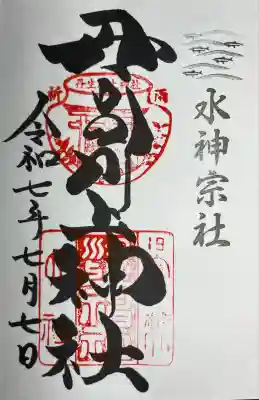 水神宗社
丹生川上神社
令和七年七月七日